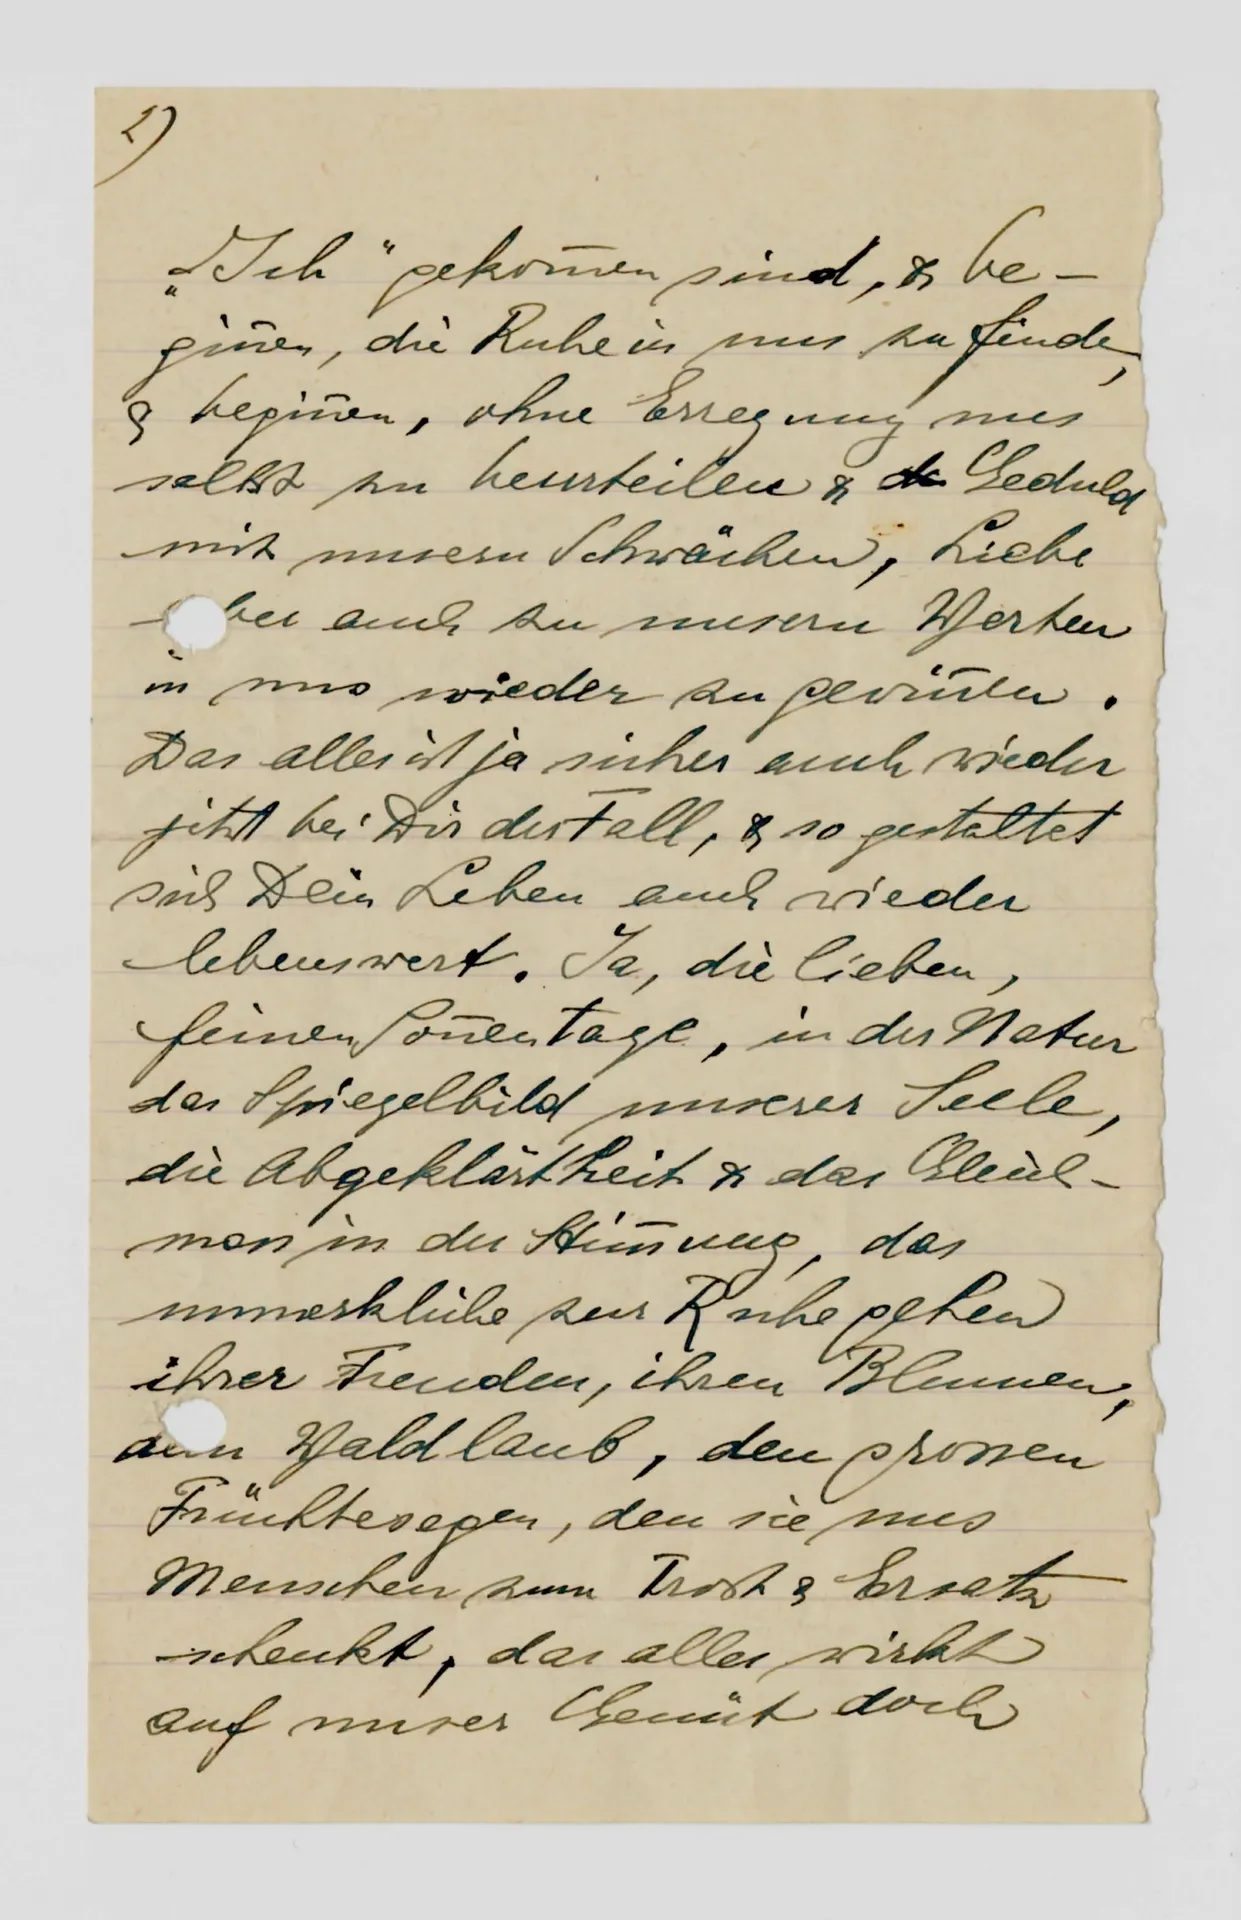 2)
„Ich" gekom̅en sind, & be-
gin̅en, die Ruhe in uns zu finden,
& begin̅en, ohne Erregung uns
selbst zu beurteilen & Geduld
mit unsern Schwächen, Liebe
aber auch zu unsern Werten
in uns wieder zu gewin̅en.
Das alles ist ja sicher auch wieder
jetzt bei Dir der Fall, & so gestaltet
sich Dein Leben auch wieder
lebenswert. Ja, die lieben,
feinen Son̅entage, in der Natur
das Spiegelbild unserer Seele,
die Abgeklärtheit & das Gleich-
mass in der Stim̅ung, das
unmerkliche zur Ruhe gehen
ihrer Freuden, ihren Blumen,
dem Waldlaub, den grossen
Früchtesegen, den sie uns
Menschen zum Trost & Ersatz
schenkt, das alles wirkt
auf unser Gemüt doch